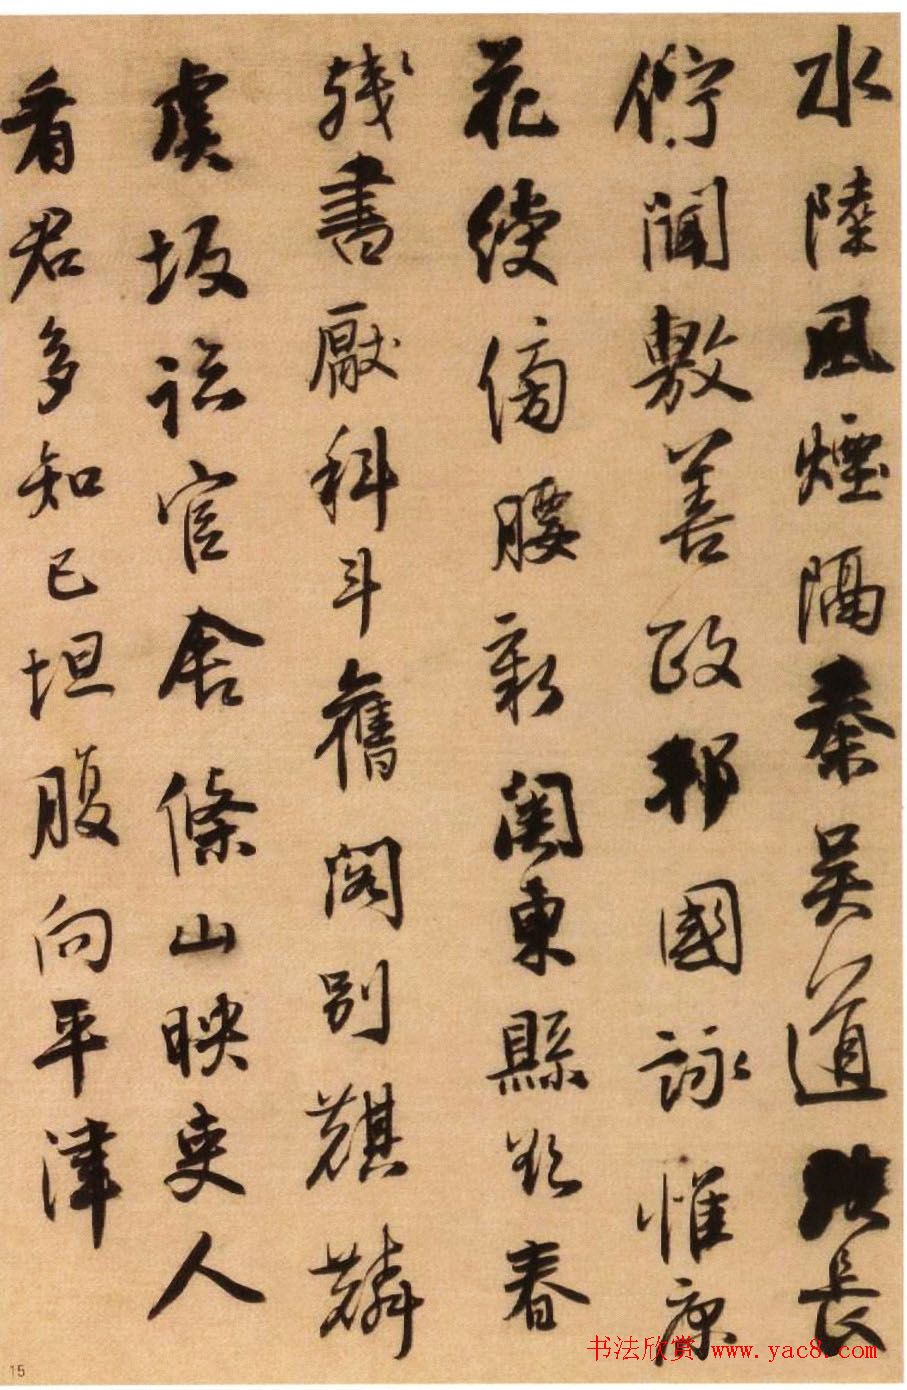 水陸風煙隔秦吴道路長
佇聞敷善政邦國詠惟康
花綬傍腰新關東縣欲春
殘書厭科斗舊閣別麒麟
虞坂臨官舍條山映吏人
看君多知己坦腹向平津
15
书法欣赏 www.yac8.com